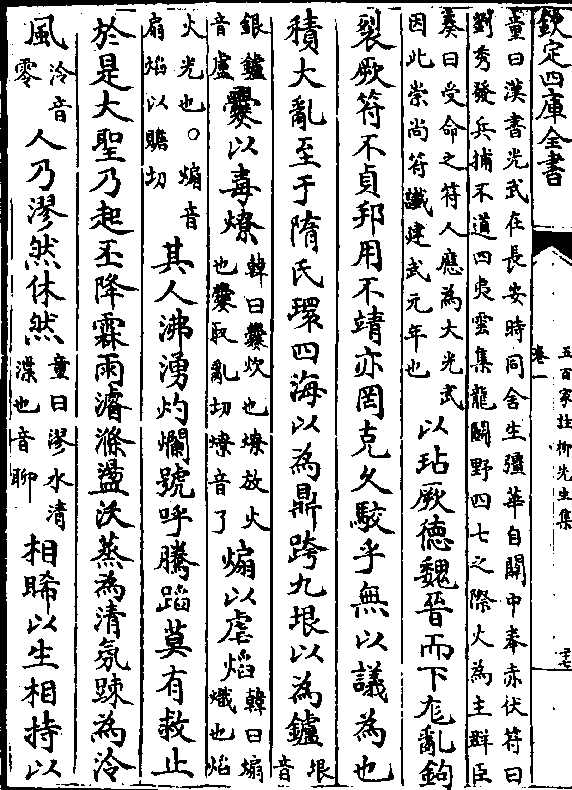 欽定四庫全書
五百家註柳先生集
卷一
童曰漢書光武在長安時同舍生彊華自關中奉赤伏符曰
劉秀發兵捕不道四夷雲集龍鬭野四七之際火為主群臣
奏曰受命之符人應為大光武
因此崇尚符讖建武元年也
以玷厥德魏晉而下尨亂鉤
裂厥符不貞邦用不靖亦罔克久駮乎無以議為也
積大亂至于隋氏環四海以為鼎跨九垠以為鑪
垠
音
銀鑪
音盧
爨以毒燎
韓曰爨炊也燎放火
也爨取亂切燎音了
煽以虐焰
韓曰煽
熾也焰
火光也○煽音
扇焰以贍切
其人沸湧灼爛號呼騰蹈莫有救止
於是大聖乃起丕降霖雨濬滌盪沃蒸為清氛踈為泠
風
泠音
零
人乃漻然休然
童曰漻水清
渫也音聊
相睎以生相持以